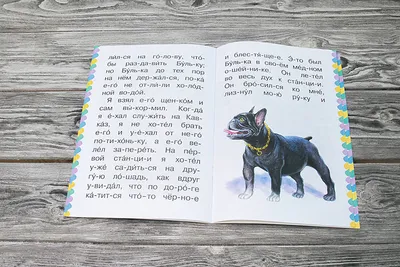 лил-ся на го-ло-ву, что-
бы раз-да-вить Бу́ль-ку;
но Бу́ль-ка до тех пор
на нём дер-жа́л-ся, по-ка́
е-го́ не от-ли́-ли хо-ло́д-
ной во-до́й.
Я взял е-го́ щен-ко́м и
сам вы́-кор-мил. Ког-да́
я е́хал слу-жи́ть на Кав-
ка́з, я не хо-те́л брать
е-го́ и у-е́-хал от не-го́
по-ти-хо́нь-ку, а е-го́ ве-
ле́л за-пе-ре́ть. На пе́р-
вой ста́н-ци-и я хо-те́л
у-же́ са-ди́ть-ся на дру-
гу́-ю ло́-шадь, как вдруг
у-ви́-дал, что по до-ро́-ге
ка́-тит-ся что́-то чёр-но-е
и блес-тя́-ще-е. Э́-то был
Бу́ль-ка в сво-ём ме́д-ном
о-ше́й-ни-ке. Он ле-те́л
во весь дух к ста́н-ци-и.
Он бро́-сил-ся ко мне,
лиз-ну́л мо-ю́ ру́-ку и